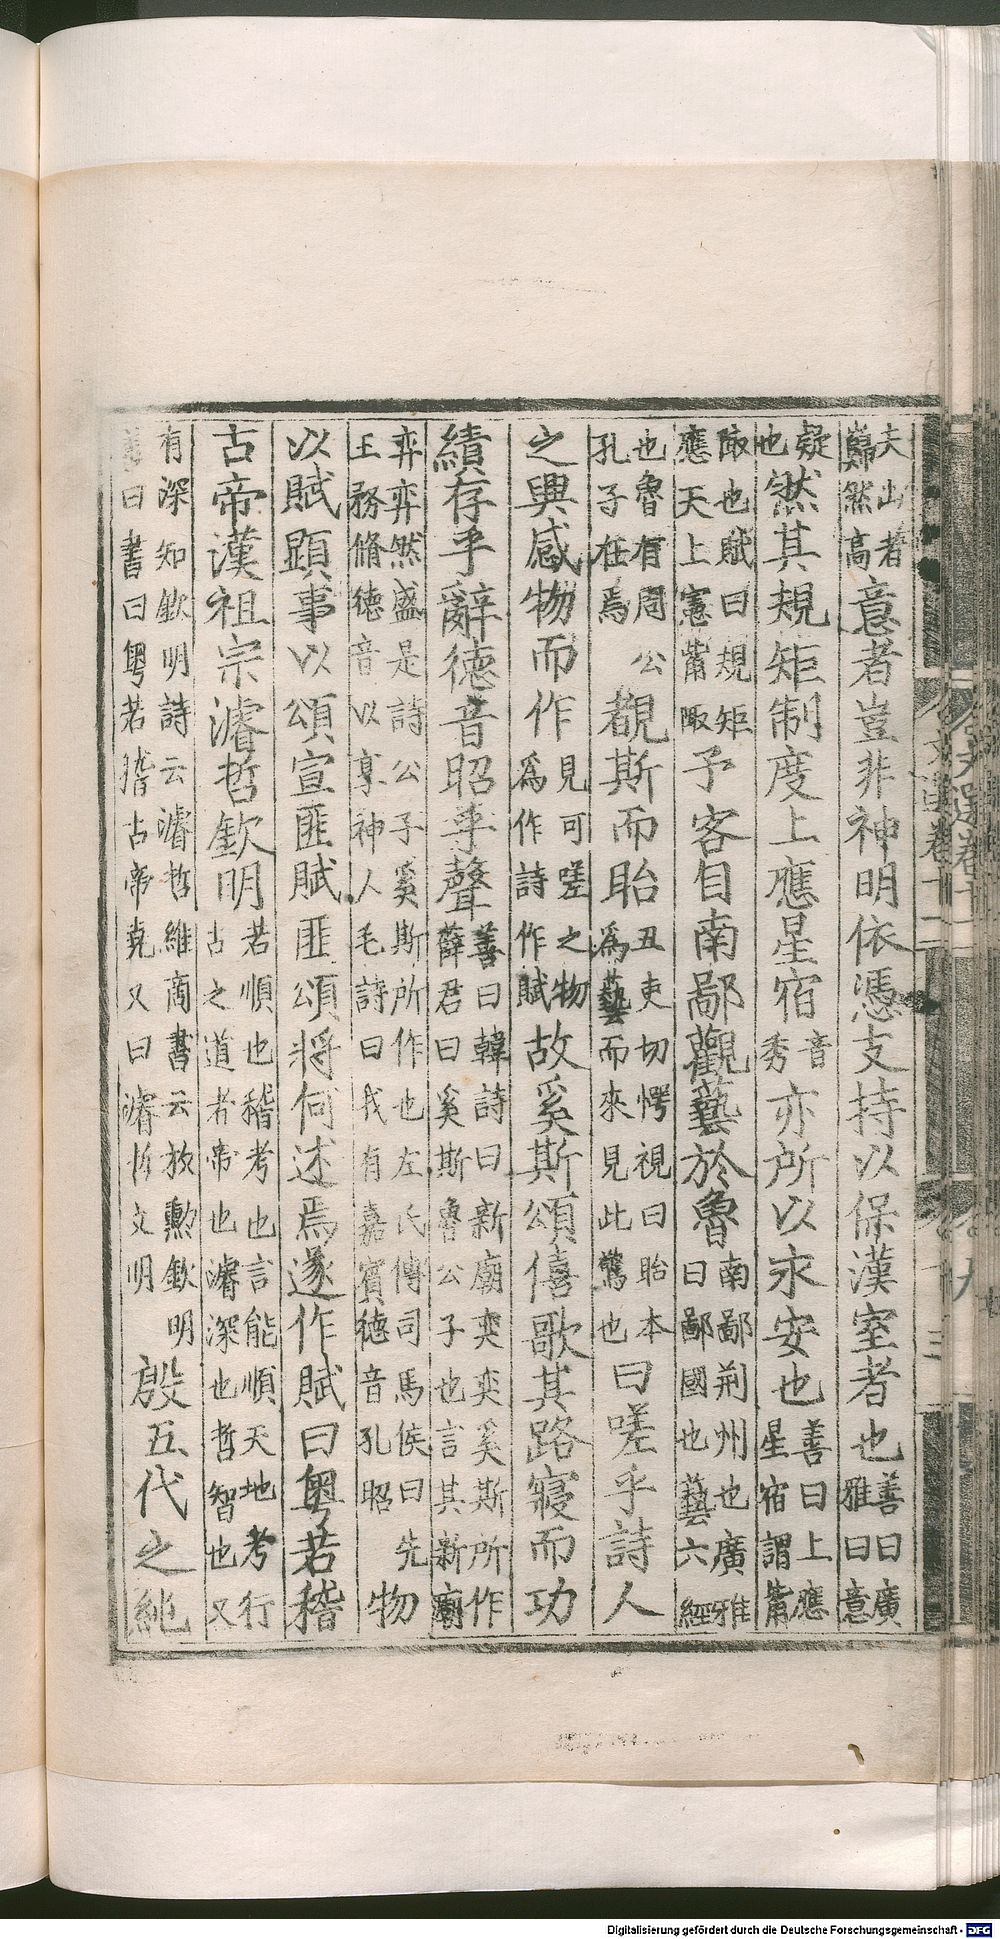 夫山者巋然高意者豈非神明依憑支持以保漢室者也善曰廣雅曰意
疑也然其規矩制度上應星宿音秀亦所以永安也善曰上應星宿謂觜
陬也賦曰規矩應天上憲觜陬予客自南鄙觀藝於魯南鄙荆州也廣雅曰鄙國也藝六經
也魯有周公孔子在焉覩斯而眙丑吏切愕視曰眙本爲藝而來見此驚也曰嗟乎詩人
之興感物而作見可嗟之物爲作詩作賦故奚斯頌僖歌其路寢而功
績存乎辭德音昭乎聲善曰韓詩曰新廟奕奕奚斯所作薛君曰奚斯魯公子也言其新廟
弈弈然盛是詩公子奚斯所作也左氏傳司馬侯曰先王務脩德音以享神人毛詩曰我有嘉賓德音孔昭物
以賦顯事以頌宣匪賦匪頌將何述焉遂作賦曰粤若稽
古帝漢祖宗濬哲欽明若順也稽考也言能順天地考行古之道者帝也濬深也哲智也又
有深知欽明詩云濬哲維商書云放勲欽明善曰書曰粤若稽古帝堯又曰濬哲文明殷五代之純
文選卷十一
三
Digitalisierung gefördert durch die Deutsche Forschungsgemeinschaft - DFG